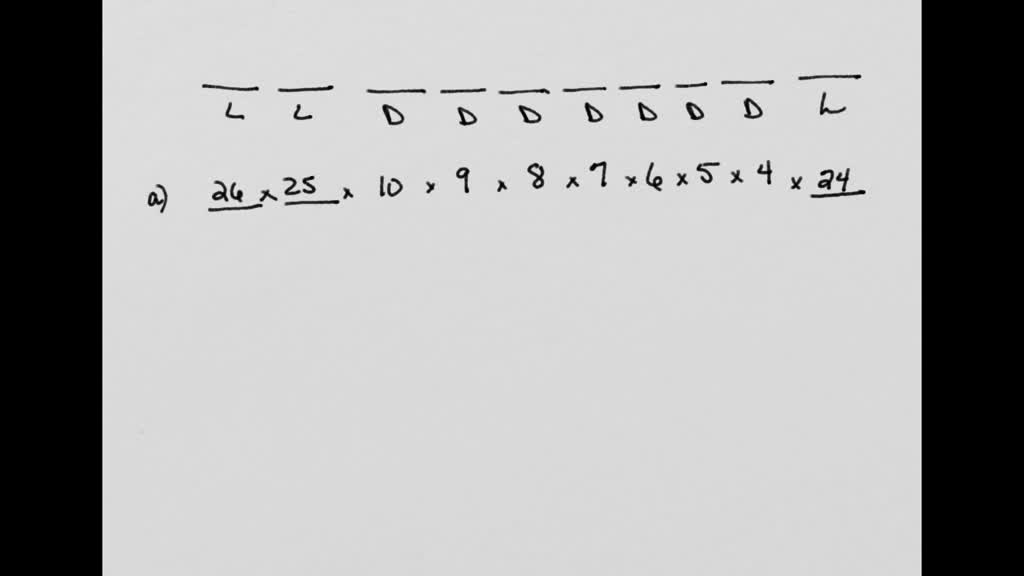 L L D D D D D D D L
a) 26 × 25 × 10 × 9 × 8 × 7 × 6 × 5 × 4 × 24